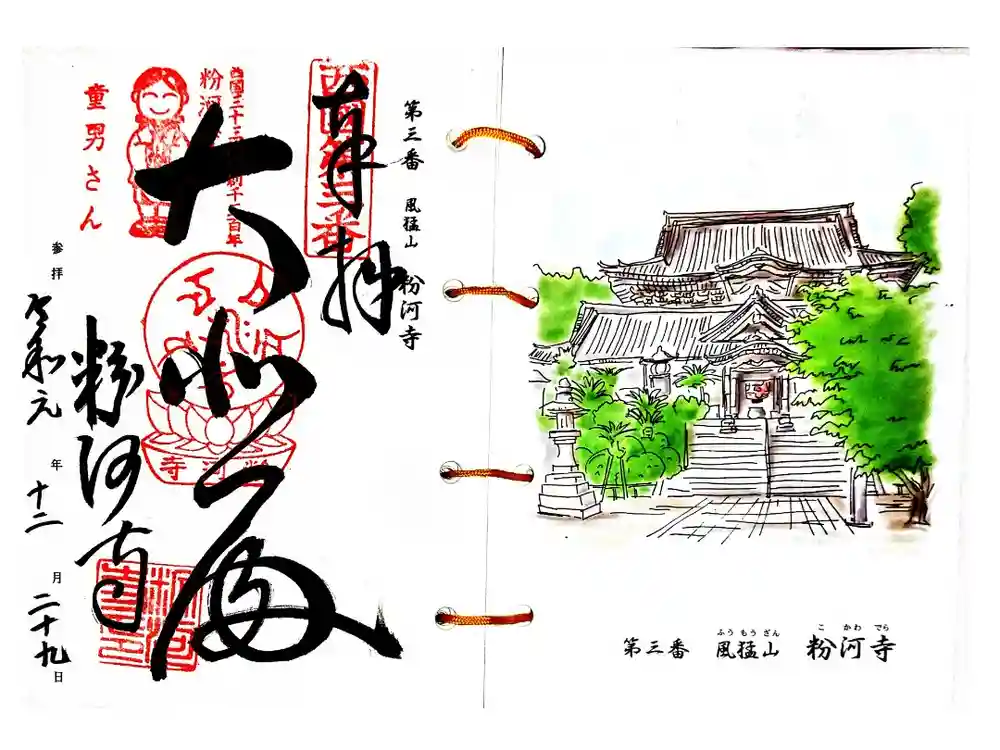 第三番 風猛山 粉河寺
奉拝
西國第三番
大悲殿
粉河寺
童男さん
参拝 令和元年十二月二十九日
寺河粉
ふうもうざん こかわでら
第三番 風猛山 粉河寺